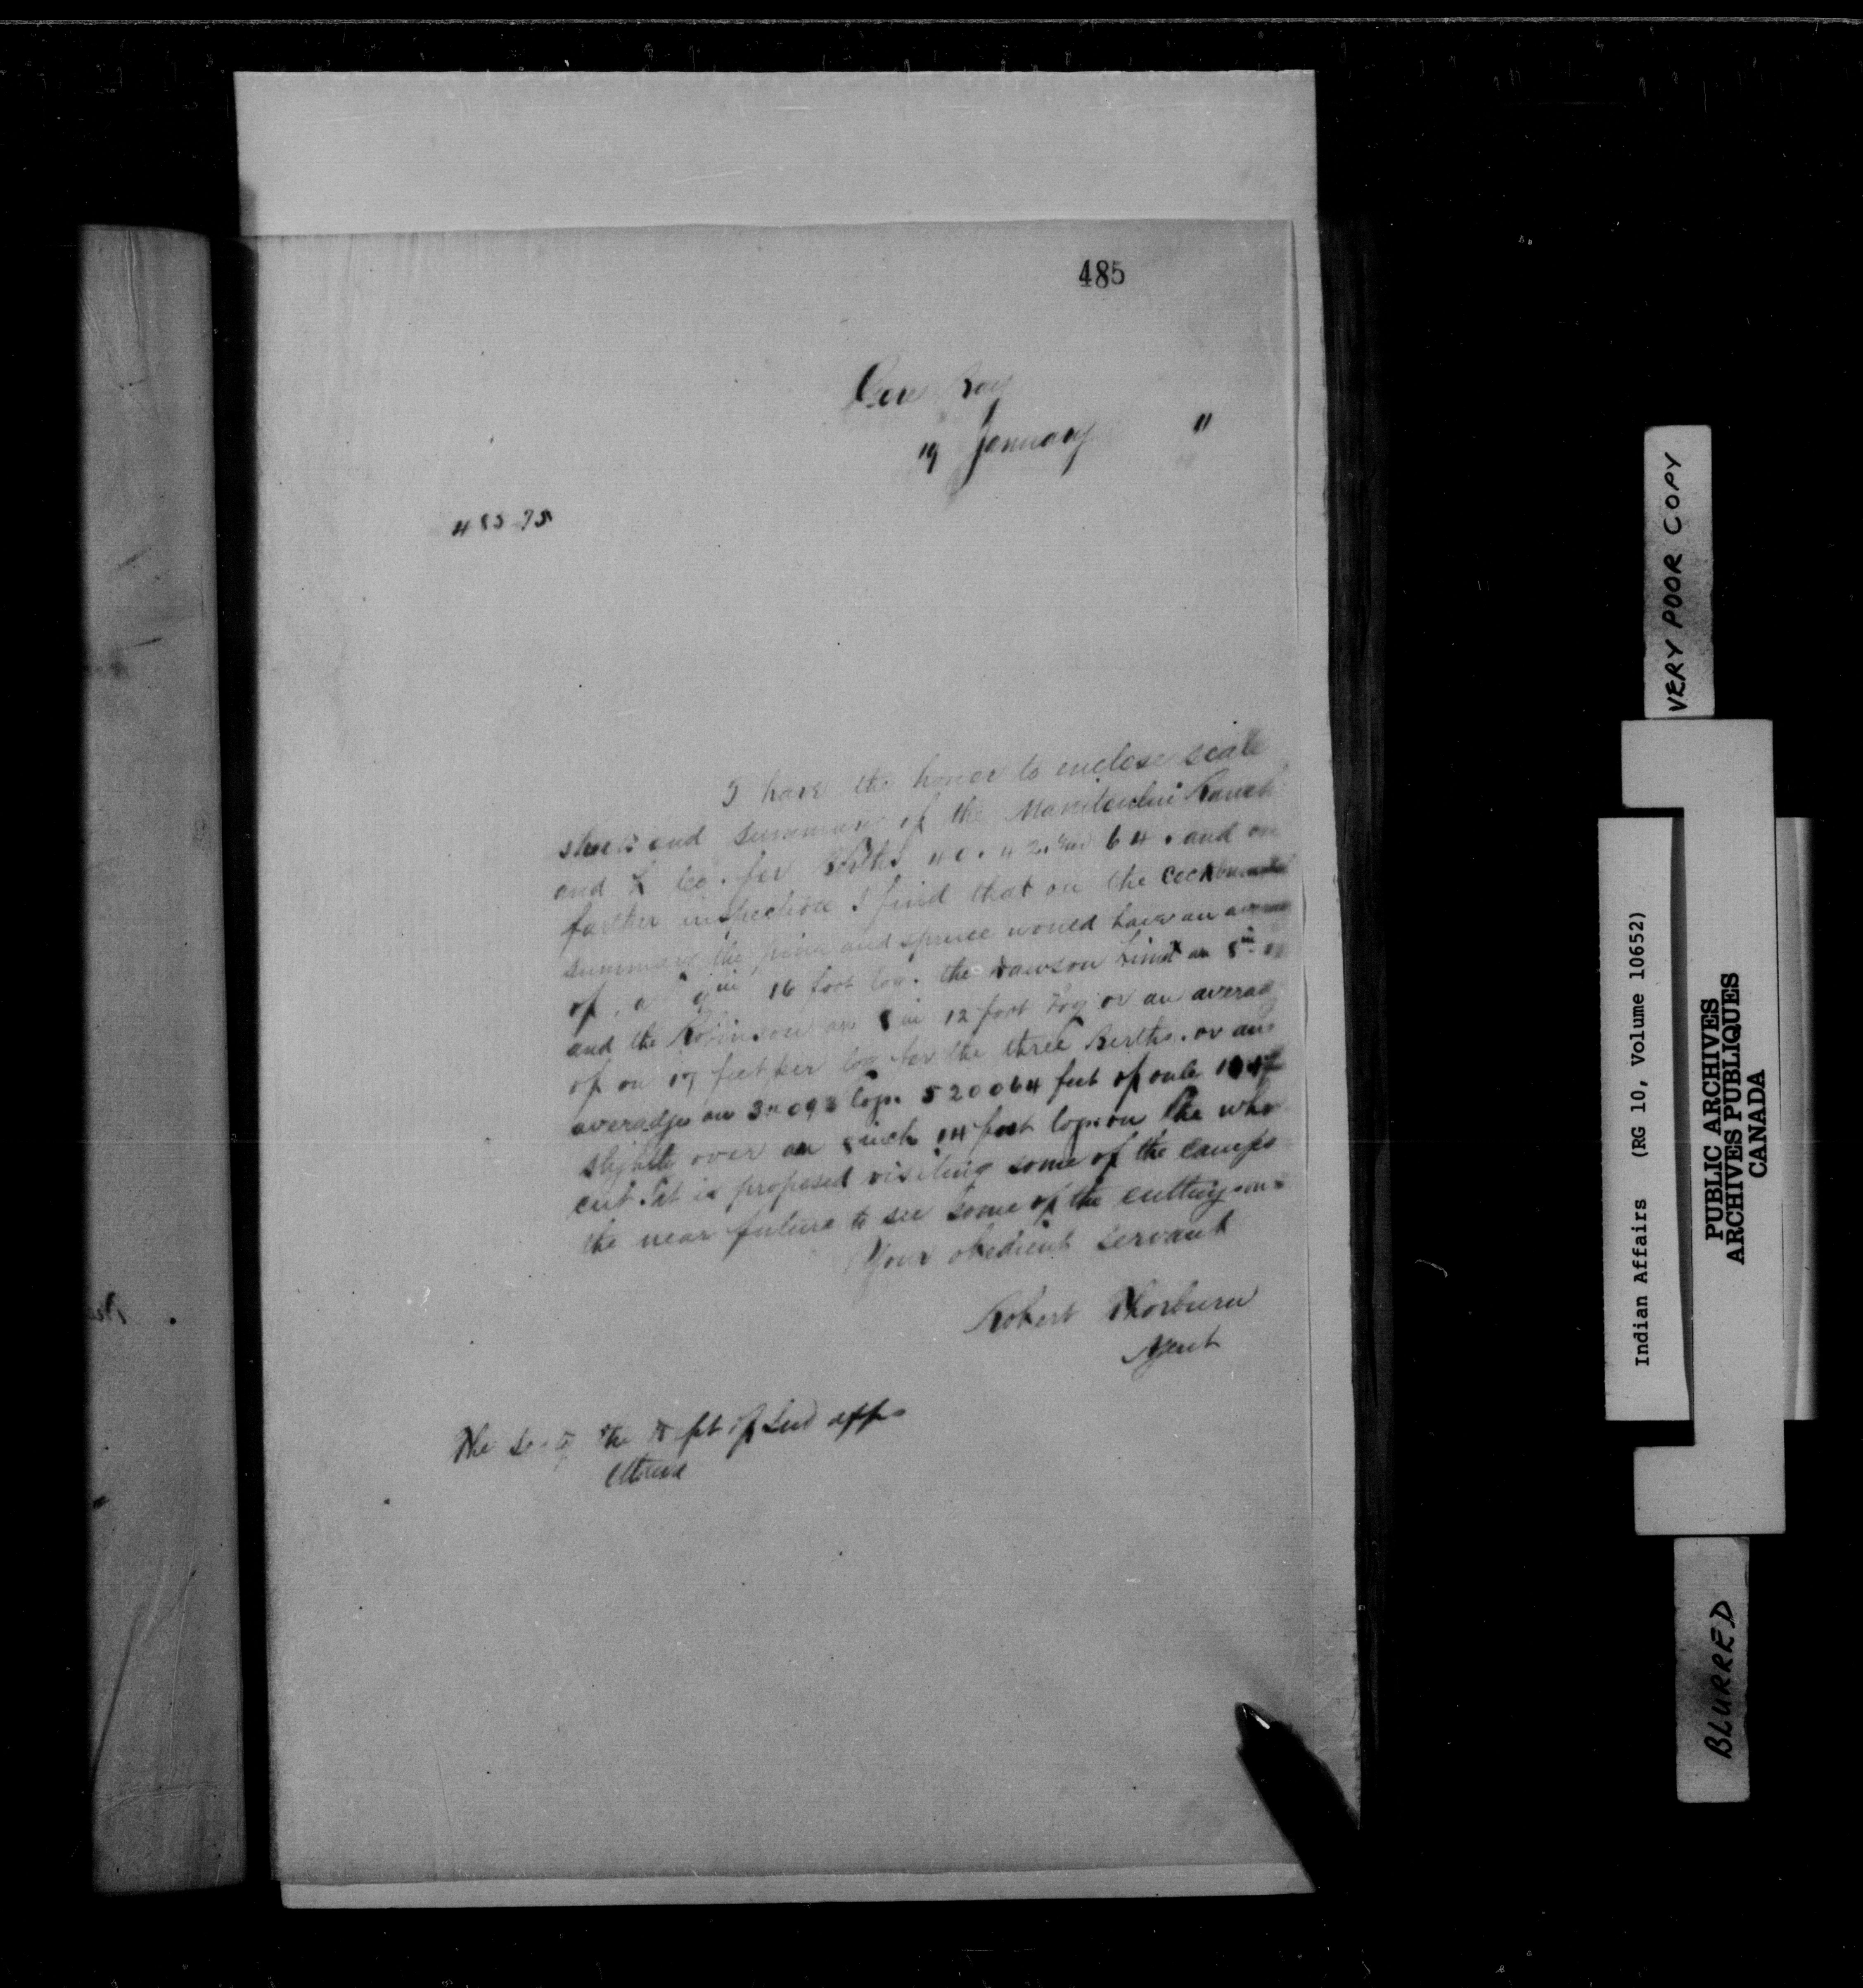 485
Gore Bay
19 January "
I have the honor to enclose scale
sheets and summary of the Manitoulin Ranch
and L Co. for Berths 40. 42. and 64. and on
further inspection I find that on the
summary the pine and spruce would have an average
of 16 foot log. the Dawson Limit an 8 in
and the Robinson an 8 in 12 foot Log or an averadge
of on 17 feet per log for the three Berths. or an
averadge on logs. 520064 feet of only
slightly over an 8 inch 14 foot logs on the whole
cut. It is proposed visiting some of the camps
the near future to see some of the cutting
Your obedient servant
Robert Thorburn
Agent
The Secty the Dept of Ind affs
Ottawa
VERY POOR COPY
Indian Affairs (RG 10, Volume 10652)
PUBLIC ARCHIVES
ARCHIVES PUBLIQUES
CANADA
BLURRED